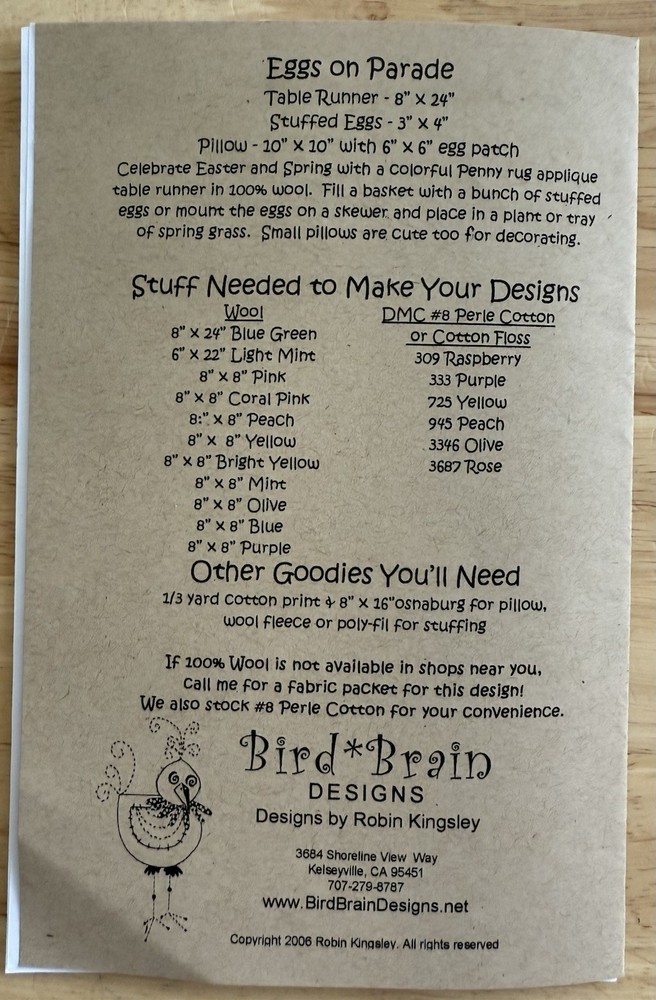 Eggs on Parade
Table Runner - 8" x 24"
Stuffed Eggs - 3" x 4"
Pillow - 10" x 10" with 6" x 6" egg patch
Celebrate Easter and Spring with a colorful Penny rug applique
table runner in 100% wool. Fill a basket with a bunch of stuffed
eggs or mount the eggs on a skewer and place in a plant or tray
of spring grass. Small pillows are cute too for decorating.
Stuff Needed to Make Your Designs
Wool
8" x 24" Blue Green
6" x 22" Light Mint
8" x 8" Pink
8" x 8" Coral Pink
8:" x 8" Peach
8" x 8" Yellow
8" x 8" Bright Yellow
8" x 8" Mint
8" x 8" Olive
8" x 8" Blue
8" x 8" Purple
DMC #8 Perle Cotton
or Cotton Floss
309 Raspberry
333 Purple
725 Yellow
945 Peach
3346 Olive
3687 Rose
Other Goodies You'll Need
1/3 yard cotton print & 8" x 16"osnaburg for pillow,
wool fleece or poly-fil for stuffing
If 100% Wool is not available in shops near you,
call me for a fabric packet for this design!
We also stock #8 Perle Cotton for your convenience.
Bird*Brain
DESIGNS
Designs by Robin Kingsley
3684 Shoreline View Way
Kelseyville, CA 95451
707-279-8787
www.BirdBrainDesigns.net
Copyright 2006 Robin Kingsley. All rights reserved